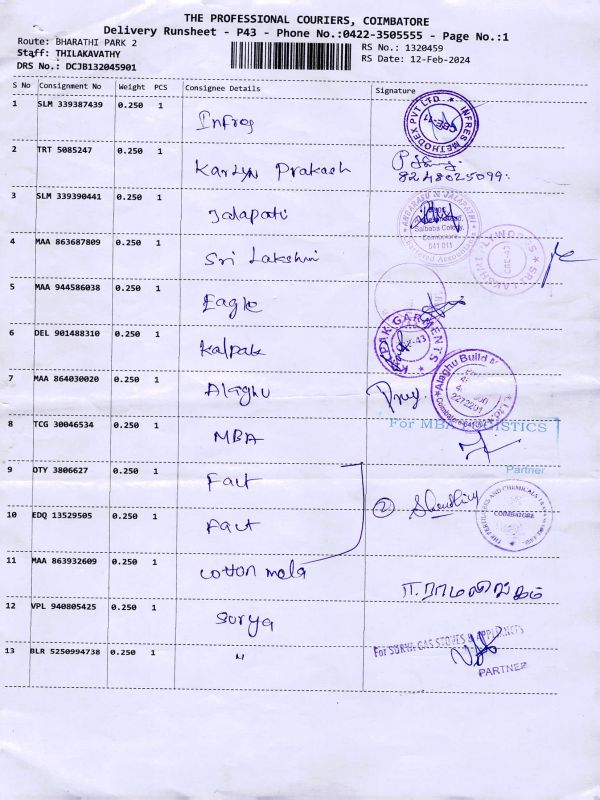 THE PROFESSIONAL COURIERS, COIMBATORE
Delivery Runsheet - P43 - Phone No.:0422-3505555 - Page No.:1
Route: BHARATHI PARK 2 RS No.: 1320459
Staff: THILAKAVATHY RS Date: 12-Feb-2024
DRS No.: DCJB132045901
S No Consignment No Weight PCS Consignee Details Signature
1 SLM 339387439 0.250 1 Infres
INFRES METHODEX PVT LTD. CBE-11
2 TRT 5085247 0.250 1 Kartyn Prakash
8248025099.
3 SLM 339390441 0.250 1 Jalapati
Saibaba Colony,
Coimbatore
641 011
4 MAA 863687809 0.250 1 Sri Lakshmi
SRI LAKSHMI CBE-43
5 MAA 944586038 0.250 1 Eagle
6 DEL 901488310 0.250 1 Kalpak
KALPAK GARMENTS CBE-43
7 MAA 864030020 0.250 1 Alaghu
Alaghu Build
8 TCG 30046534 0.250 1 MBA
For MBA LOGISTICS
Partner
9 OTY 3806627 0.250 1 Fact
2
10 EDQ 13529505 0.250 1 Fact
THE FERTILIZERS AND CHEMICALS COIMBATORE
11 MAA 863932609 0.250 1 cotton mala
π. ராமலிங்கம்
12 VPL 940805425 0.250 1 Surya
For SURYA GAS STOVES & APPLIANCES
13 BLR 5250994738 0.250 1 "
PARTNER